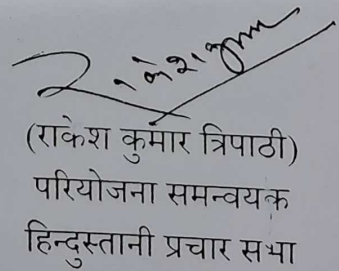 राकेश कुमार
(राकेश कुमार त्रिपाठी)
परियोजना समन्वयक
हिन्दुस्तानी प्रचार सभा